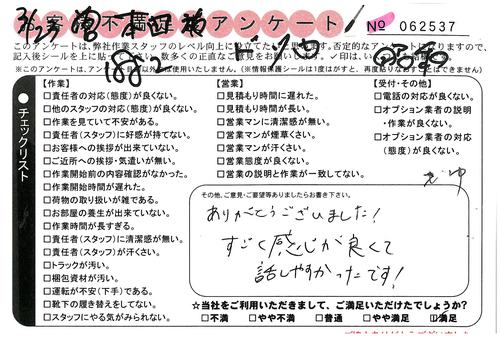 お客様不満足度アンケート
No 062537
このアンケートは、弊社作業スタッフのレベル向上に役立てたい
記入後シールを上に貼って
※このアンケートは、
●チェックリスト
【作業】
□責任者の対応(態度)が良くない。
□他のスタッフの対応(態度)が良くない。
□作業を見ていて不安がある。
□責任者(スタッフ)に好感が持てない。
□お客様への挨拶が出来ていない。
□ご近所への挨拶・気遣いが無い。
□作業開始前の内容確認がなかった。
□作業開始時間が遅れた。
□荷物の取り扱いが雑である。
□お部屋の養生が出来ていない。
□作業時間が長すぎる。
□責任者(スタッフ)に清潔感が無い。
□責任者(スタッフ)が汗くさい。
□トラックが汚い。
□梱包資材が汚い。
□運転が不安(下手)である。
□靴下の履き替えをしてない。
□スタッフにやる気がみられない。
【営業】
□見積もり時間に遅れた。
□見積もり時間が長い。
□営業マンに清潔感が無い。
□営業マンが煙草くさい。
□営業マンが汗くさい。
□営業態度が良くない。
□営業の説明と作業が一致してない。
【受付・その他】
□電話の対応が良くない。
□オプション業者の説明
・作業が良くない。
□オプション業者の対応
(態度)が良くない。
その他、ご意見・ご要望等ありましたらお書き下さい。
ありがとうございました!
すごく感じが良くて
話しやすかったです!
☆当社をご利用いただきまして、ご満足いただけたでしょうか?
□不満 □やや不満 □普通 □やや満足 □満足